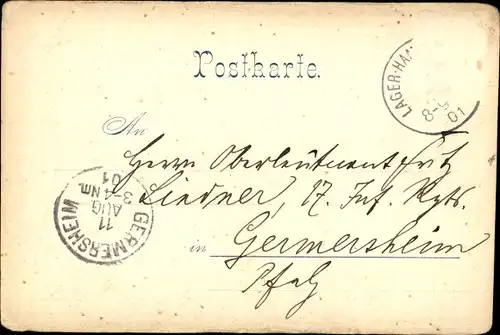 Postkarte.
LAGER-HA
8-9
01
An
Herrn Oberleutnant Fritz
Liedner, 17. Inf. Rgts.
in Germersheim
Pfalz
GERMERSHEIM
11
AUG
3-4 Nm.
01